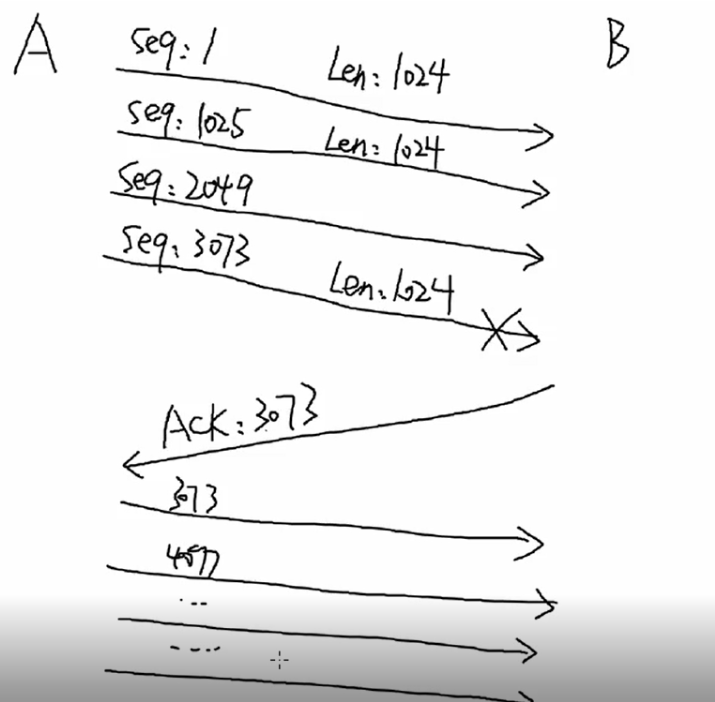 A
B
Seq: 1
Len: 1024
Seq: 1025
Len: 1024
Seq: 2049
Seq: 3073
Len: 1024
Ack: 3073
3073
4097
...
....